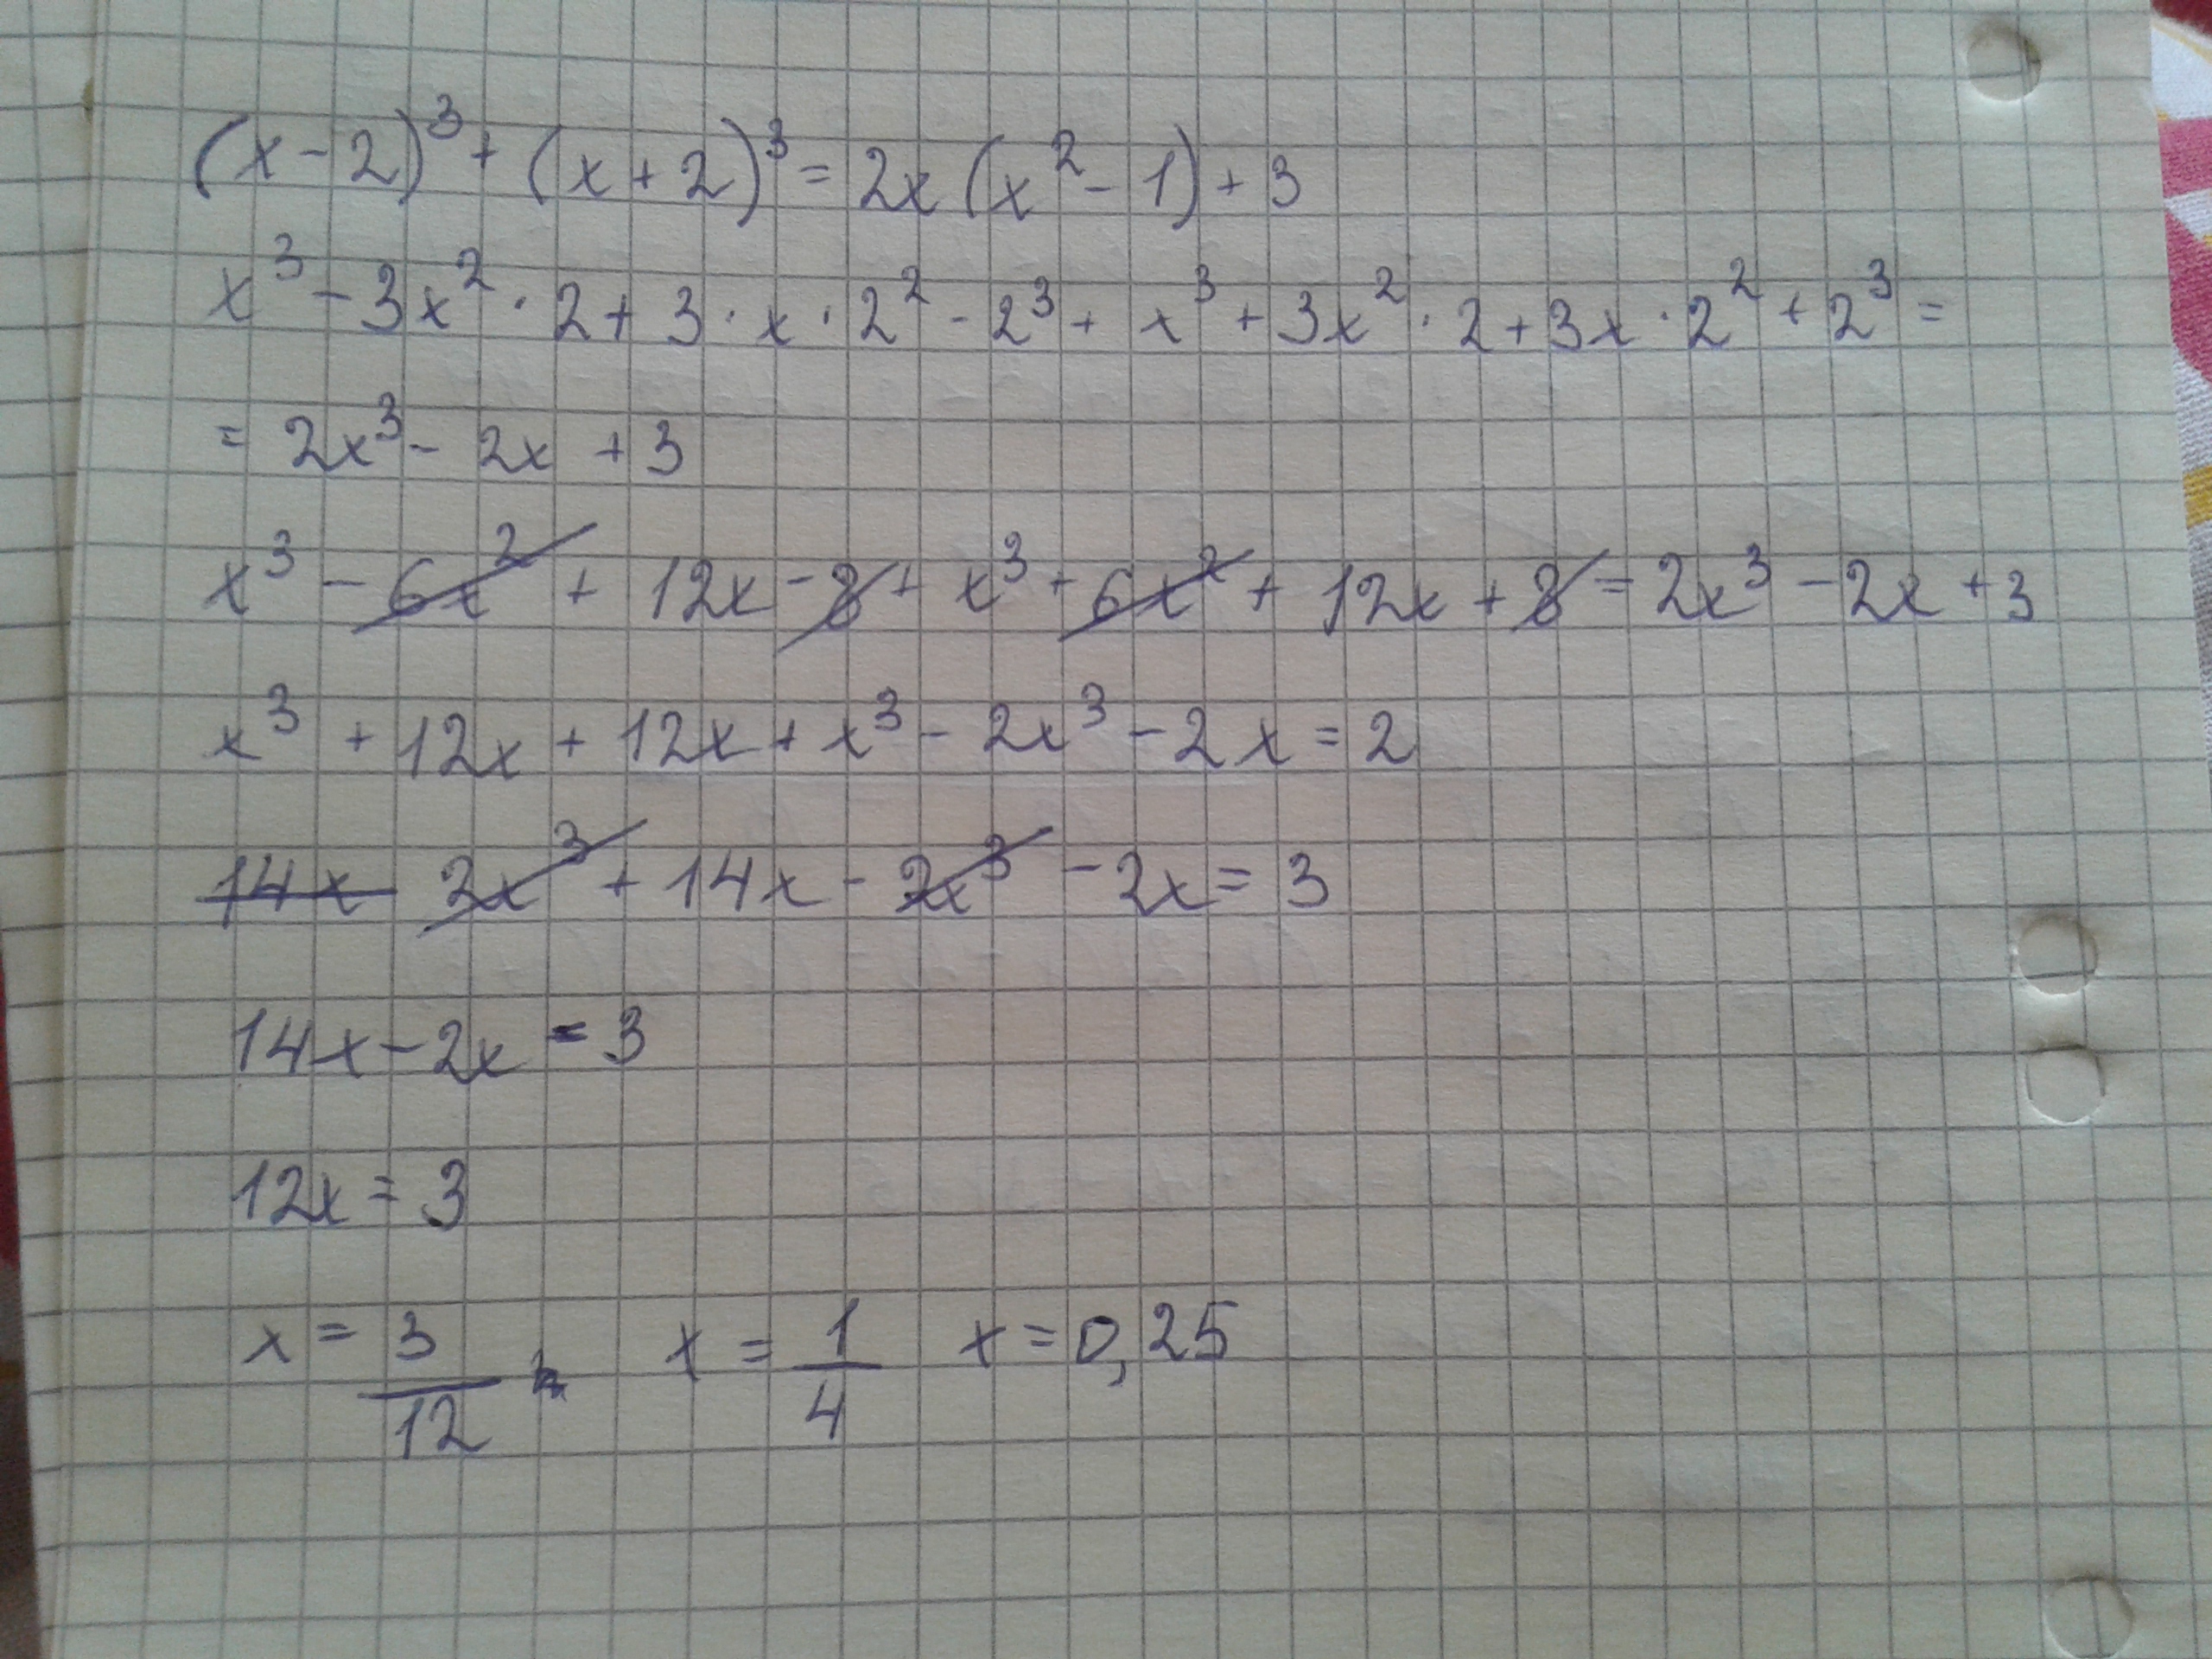 (x-2)³+(x+2)³=2x(x²-1)+3
x³-3x²·2+3·x·2²-2³+x³+3x²·2+3x·2²+2³=
=2x³-2x+3
x³-6x²+12x-8+x³+6x²+12x+8=2x³-2x+3
x³+12x+12x+x³-2x³-2x=2
14x 2x³+14x-2x³-2x=3
14x-2x=3
12x=3
x=3/12 x=1/4 x=0,25